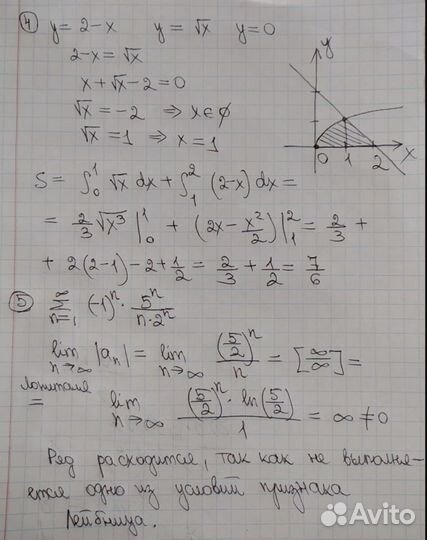 ④ y = 2-x y = √x y = 0
2-x = √x
x + √x - 2 = 0
√x = -2 ⇒ x ∈ ∅
√x = 1 ⇒ x = 1
y
0 1 2 x
S = ∫₀¹ √x dx + ∫₁² (2-x) dx =
= 2/3 √x³ |₀¹ + (2x - x²/2) |₁² = 2/3 +
+ 2(2-1) - 2 + 1/2 = 2/3 + 1/2 = 7/6
⑤ ∑_{n=1}^∞ (-1)ⁿ · 5ⁿ/(n·2ⁿ)
lim_{n→∞} |aₙ| = lim_{n→∞} (5/2)ⁿ/n = [∞/∞] =
Лопиталя
= lim_{n→∞} ((5/2)ⁿ · ln(5/2))/1 = ∞ ≠ 0
Ряд расходится, так как не выполня-
ется одно из условий признака
Лейбница.
Avito